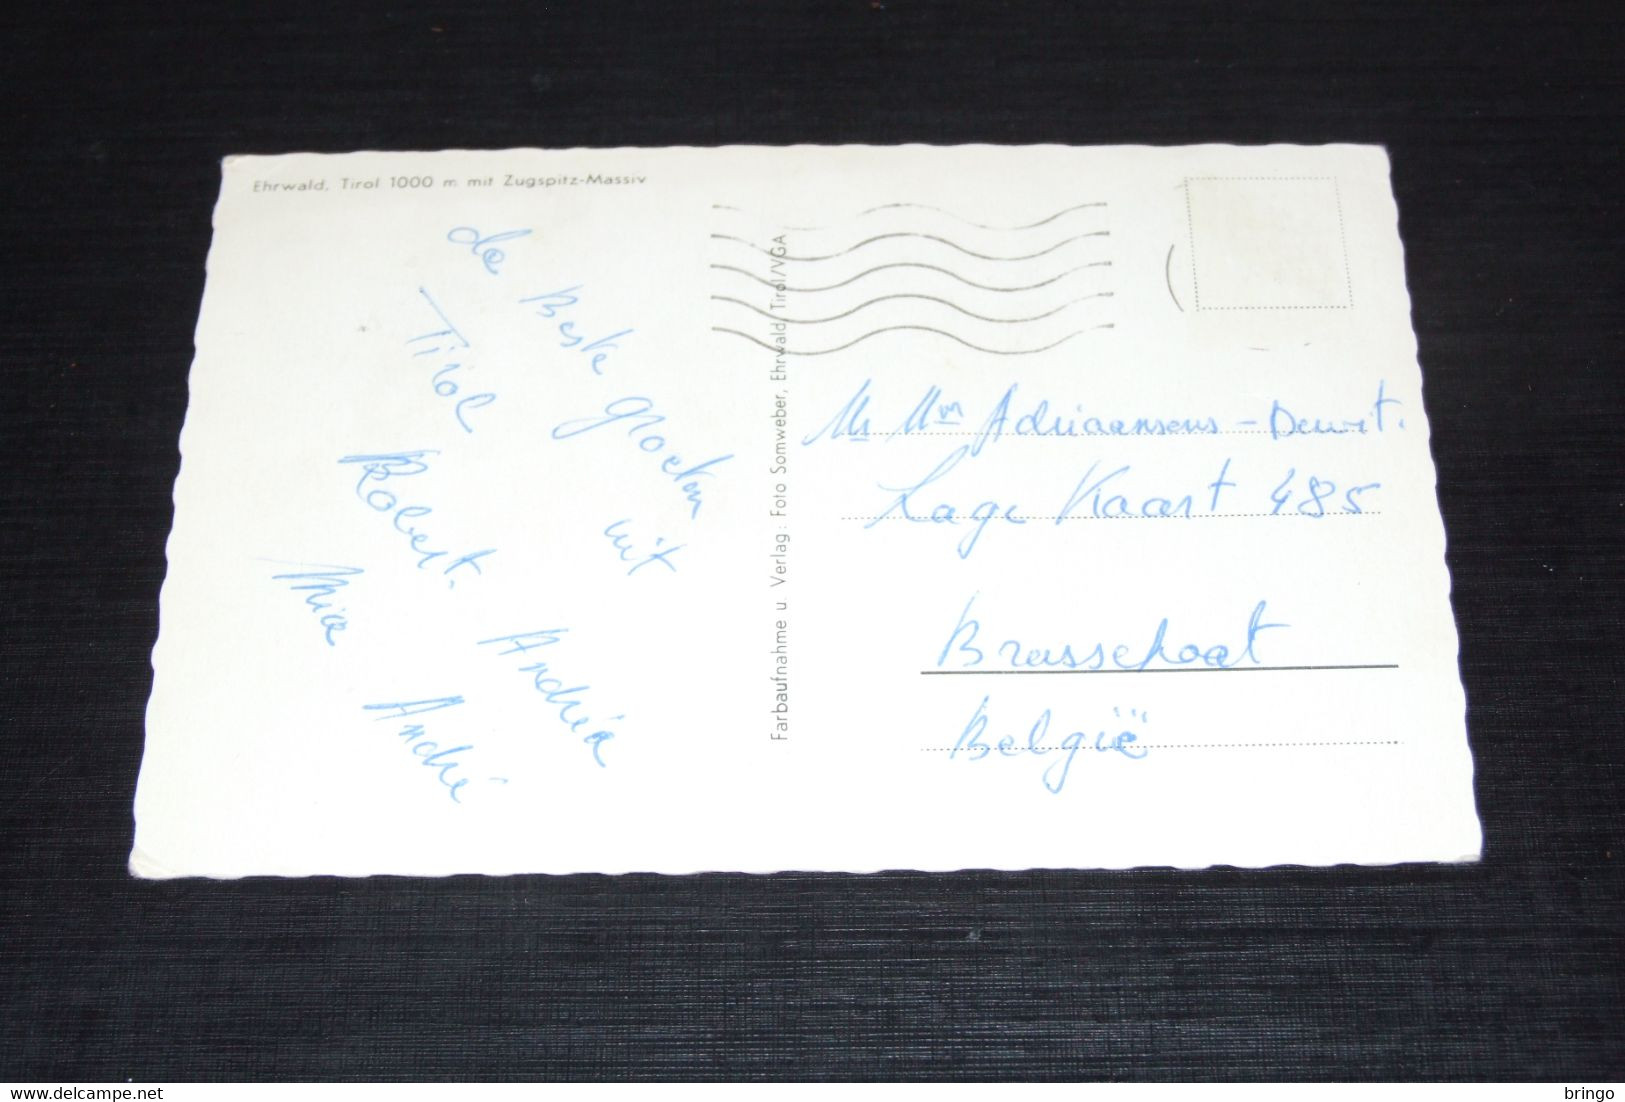 Ehrwald, Tirol 1000 m mit Zugspitz-Massiv
de Beste groeten uit
Tirol
Robert. Andréa
Mia André
Farbaufnahme u. Verlag: Foto Somweber, Ehrwald, Tirol/VGA
Mr Mm Adriaensens - Dewit.
Lage Kaart 485
Brasschaat
België
delcampe.net
bringo